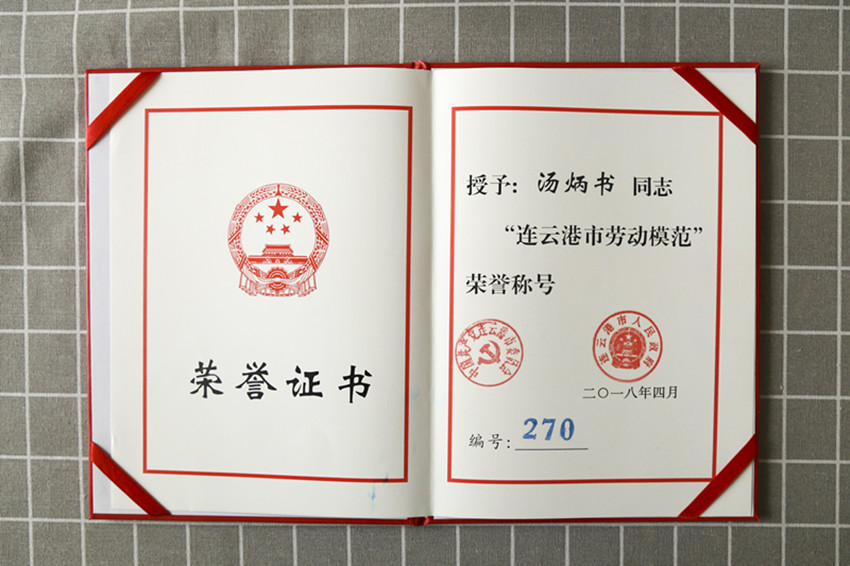 荣誉证书
授予：汤炳书 同志
“连云港市劳动模范”
荣誉称号
中国共产党连云港市委员会
连云港市人民政府
二〇一八年四月
编号：270